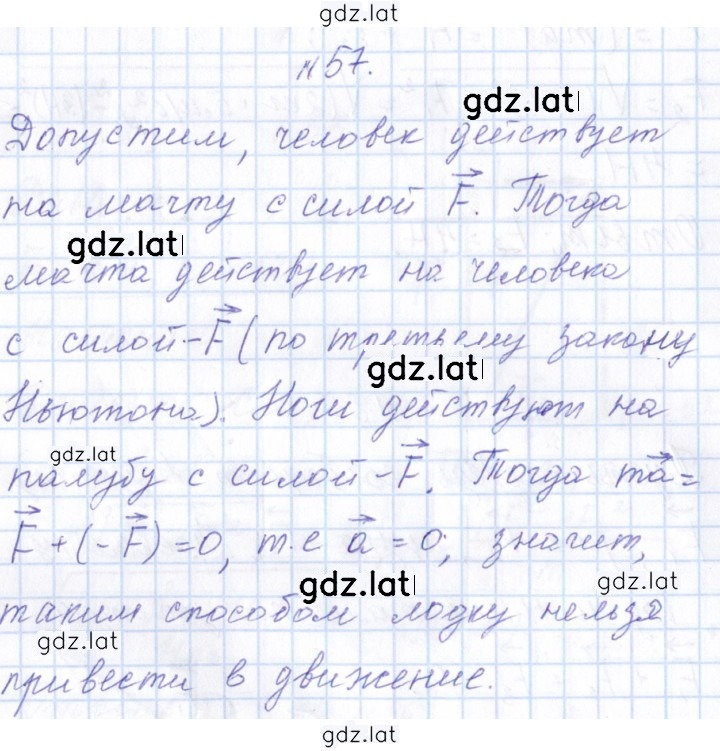 gdz.lat
№57.
gdz.lat
Допустим, человек действует
на мачту с силой F. Тогда
gdz.lat
мачта действует на человека
с силой -F (по третьему закону
gdz.lat
Ньютона). Ноги действуют на
gdz.lat
палубу с силой -F. Тогда ma =
F + (-F) = 0, т.е a = 0, значит,
gdz.lat gdz.lat
таким способом лодку нельзя
gdz.lat
привести в движение.
gdz.lat